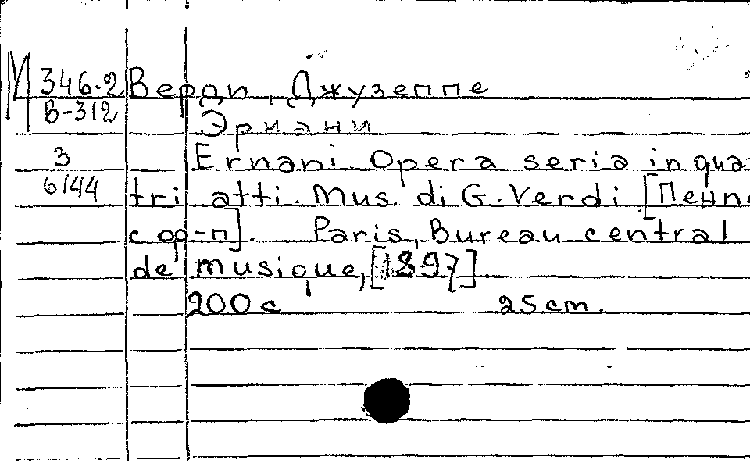 М 346.2 Верди, Джузеппе
В-312
Эрнани
3 Ernani. Opera seria in qua
6144 tri atti. Mus. di G. Verdi [Пение
с ор-п]. Paris, Bureau central
de musique, [1897]
200 с 25 cm.